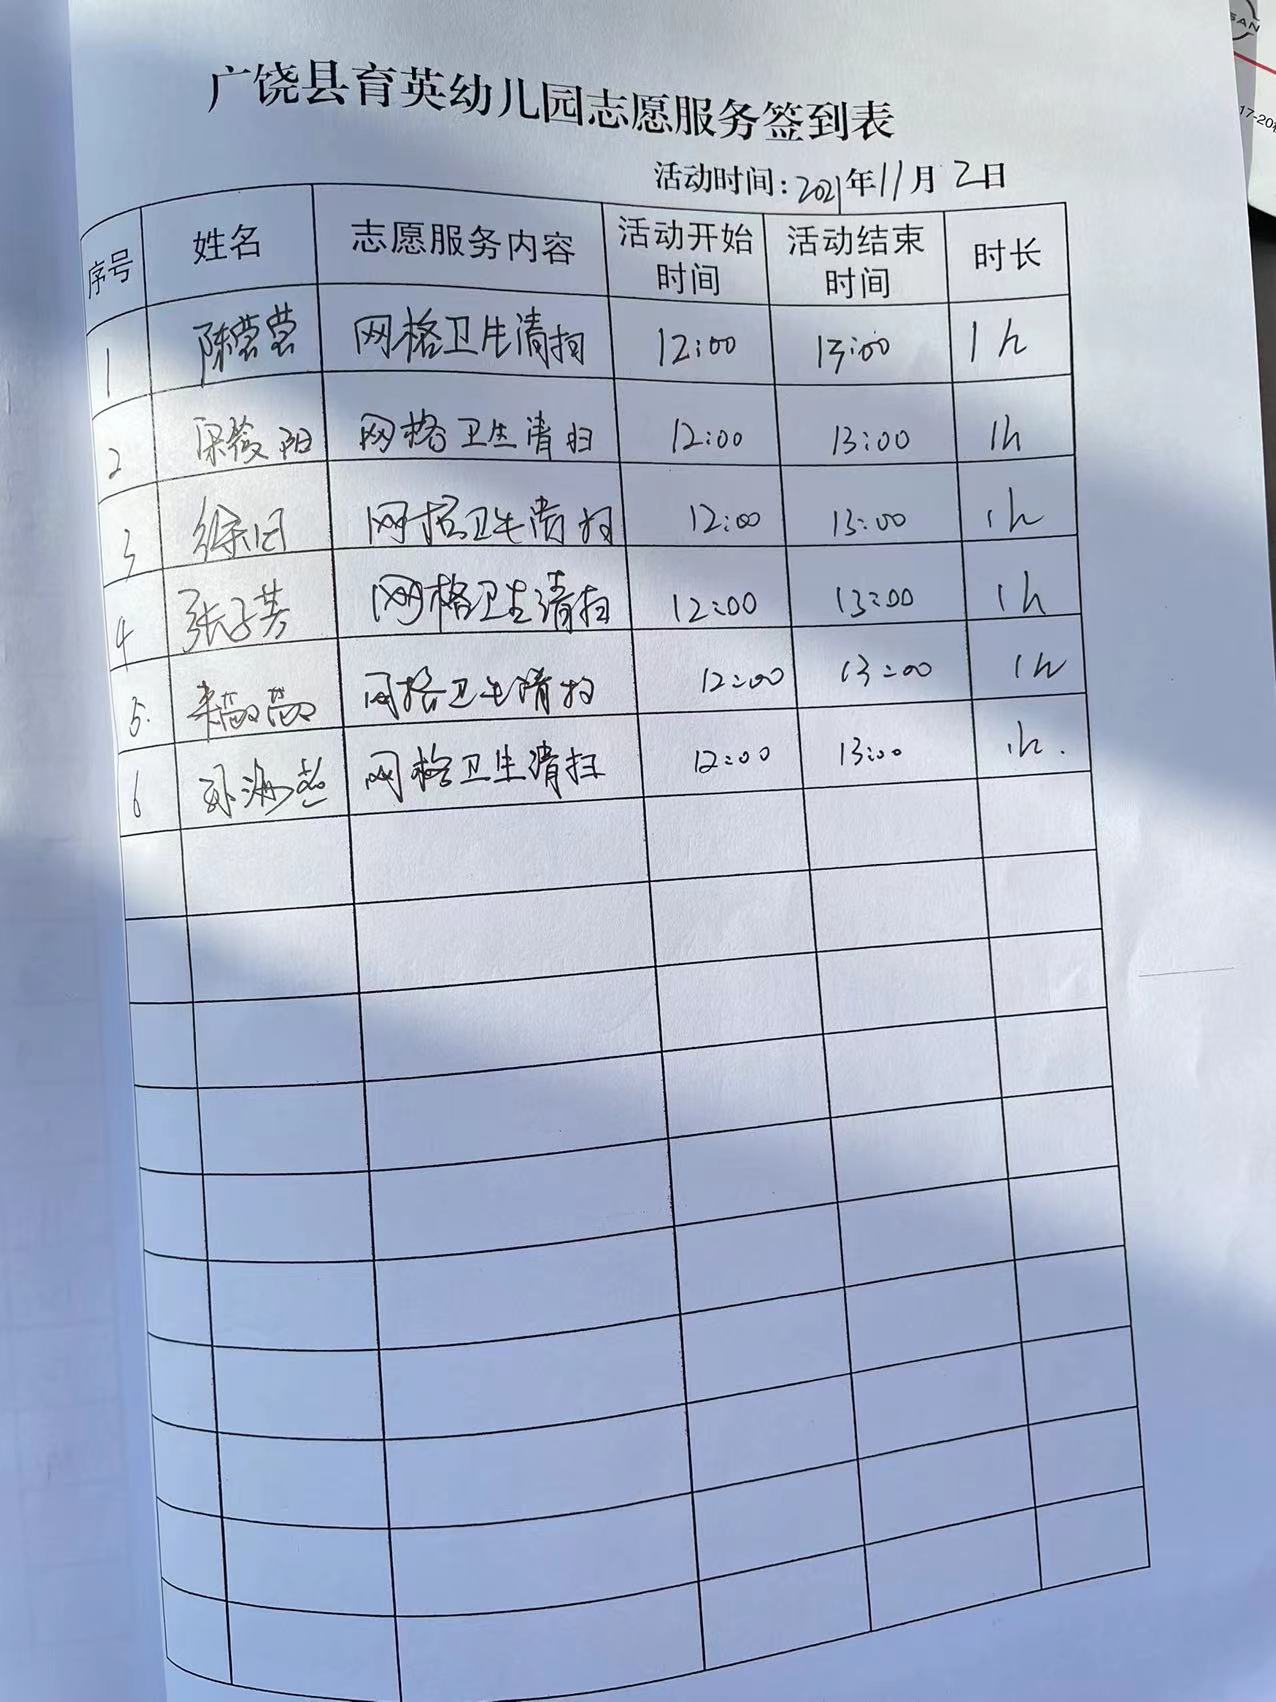 广饶县育英幼儿园志愿服务签到表
活动时间:2021年11月2日
序号 姓名 志愿服务内容 活动开始时间 活动结束时间 时长
1 陈莹莹 网格卫生清扫 12:00 13:00 1h
2 阳 网格卫生清扫 12:00 13:00 1h
3 徐 网格卫生清扫 12:00 13:00 1h
4 张子芳 网格卫生清扫 12:00 13:00 1h
5. 网格卫生清扫 12:00 13:00 1h
6 孙海 网格卫生清扫 12:00 13:00 1h.
SAN
17-20